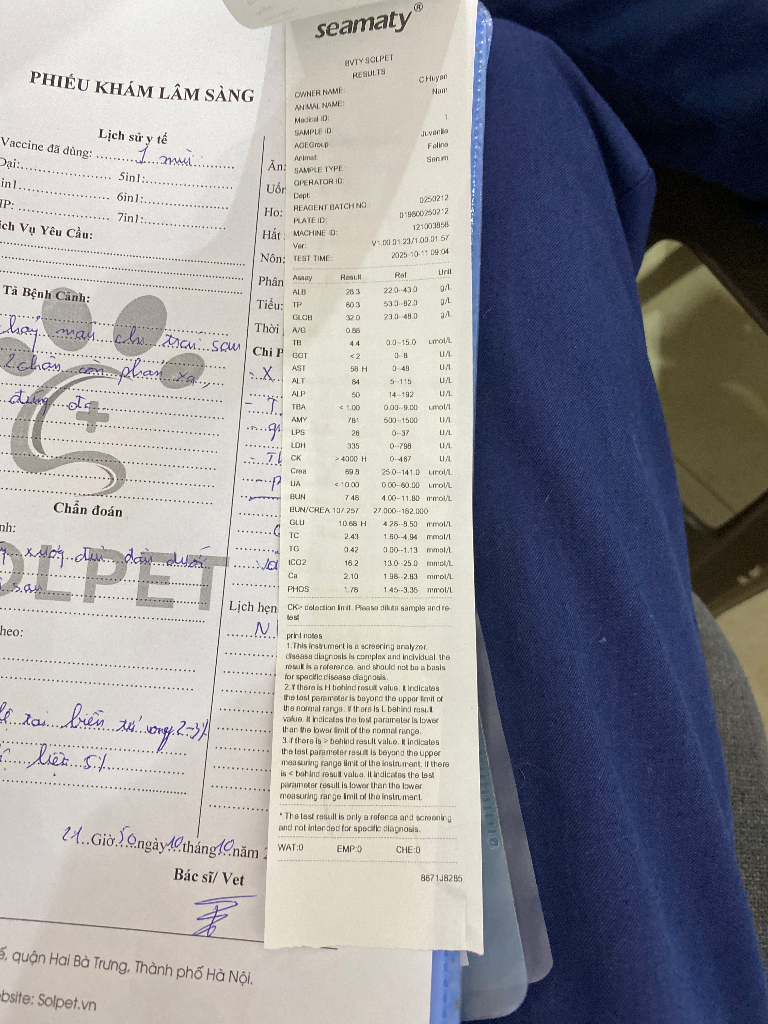 PHIẾU KHÁM LÂM SÀNG
Lịch sử y tế
Vaccine đã dùng: 1 mũi
5in1:
6in1:
7in1:
ịch Vụ Yêu Cầu:
Tả Bệnh Cảnh:
2 chân còn phản xạ,
Chẩn đoán
SOLPET
21 Giờ 50 ngày 10 tháng 10 năm
Bác sĩ/ Vet
quận Hai Bà Trưng, Thành phố Hà Nội.
ebsite: Solpet.vn
Ăn:
Ho:
Hắt
Nôn:
Phân
Tiểu:
Thời
Chỉ P
Lịch hẹn
seamaty®
BVTY SOLPET
RESULTS
OWNER NAME: C Huyen
ANIMAL NAME: Nam
Medical ID:
SAMPLE ID: 1
AGEGroup Juvenile
Animal Feline
SAMPLE TYPE Serum
OPERATOR ID:
Dept:
REAGENT BATCH NO: 0250212
PLATE ID: 019800250212
MACHINE ID: 121003858
Ver: V1.00.01.23/1.00.01.57
TEST TIME: 2025-10-11 09:04
Assay Result Ref Unit
ALB 28.3 22.0--43.0 g/L
TP 60.3 53.0--82.0 g/L
GLOB 32.0 23.0--48.0 g/L
A/G 0.88
TB 4.4 0.0--15.0 umol/L
GGT <2 0--8 U/L
AST 58 H 0--48 U/L
ALT 84 5--115 U/L
ALP 50 14--192 U/L
TBA <1.00 0.00--9.00 umol/L
AMY 781 500--1500 U/L
LPS 26 0--37 U/L
LDH 335 0--798 U/L
CK >4000 H 0--467 U/L
Crea 69.8 25.0--141.0 umol/L
UA <10.00 0.00--60.00 umol/L
BUN 7.48 4.00--11.80 mmol/L
BUN/CREA 107.257 27.000--182.000
GLU 10.68 H 4.28--8.50 mmol/L
TC 2.43 1.60--4.94 mmol/L
TG 0.42 0.00--1.13 mmol/L
tCO2 16.2 13.0--25.0 mmol/L
Ca 2.10 1.98--2.83 mmol/L
PHOS 1.78 1.45--3.35 mmol/L
CK> detection limit. Please dilute sample and re-
test
print notes
1.This instrument is a screening analyzer,
disease diagnosis is complex and individual, the
result is a reference, and should not be a basis
for specific disease diagnosis.
2.If there is H behind result value, it indicates
the test parameter is beyond the upper limit of
the normal range. If there is L behind result
value, it indicates the test parameter is lower
than the lower limit of the normal range.
3.if there is > behind result value, it indicates
the test parameter result is beyond the upper
measuring range limit of the instrument. If there
is < behind result value, it indicates the test
parameter result is lower than the lower
measuring range limit of the instrument.
* The test result is only a refence and screening
and not intended for specific diagnosis.
WAT:0 EMP:0 CHE:0
8671J8285